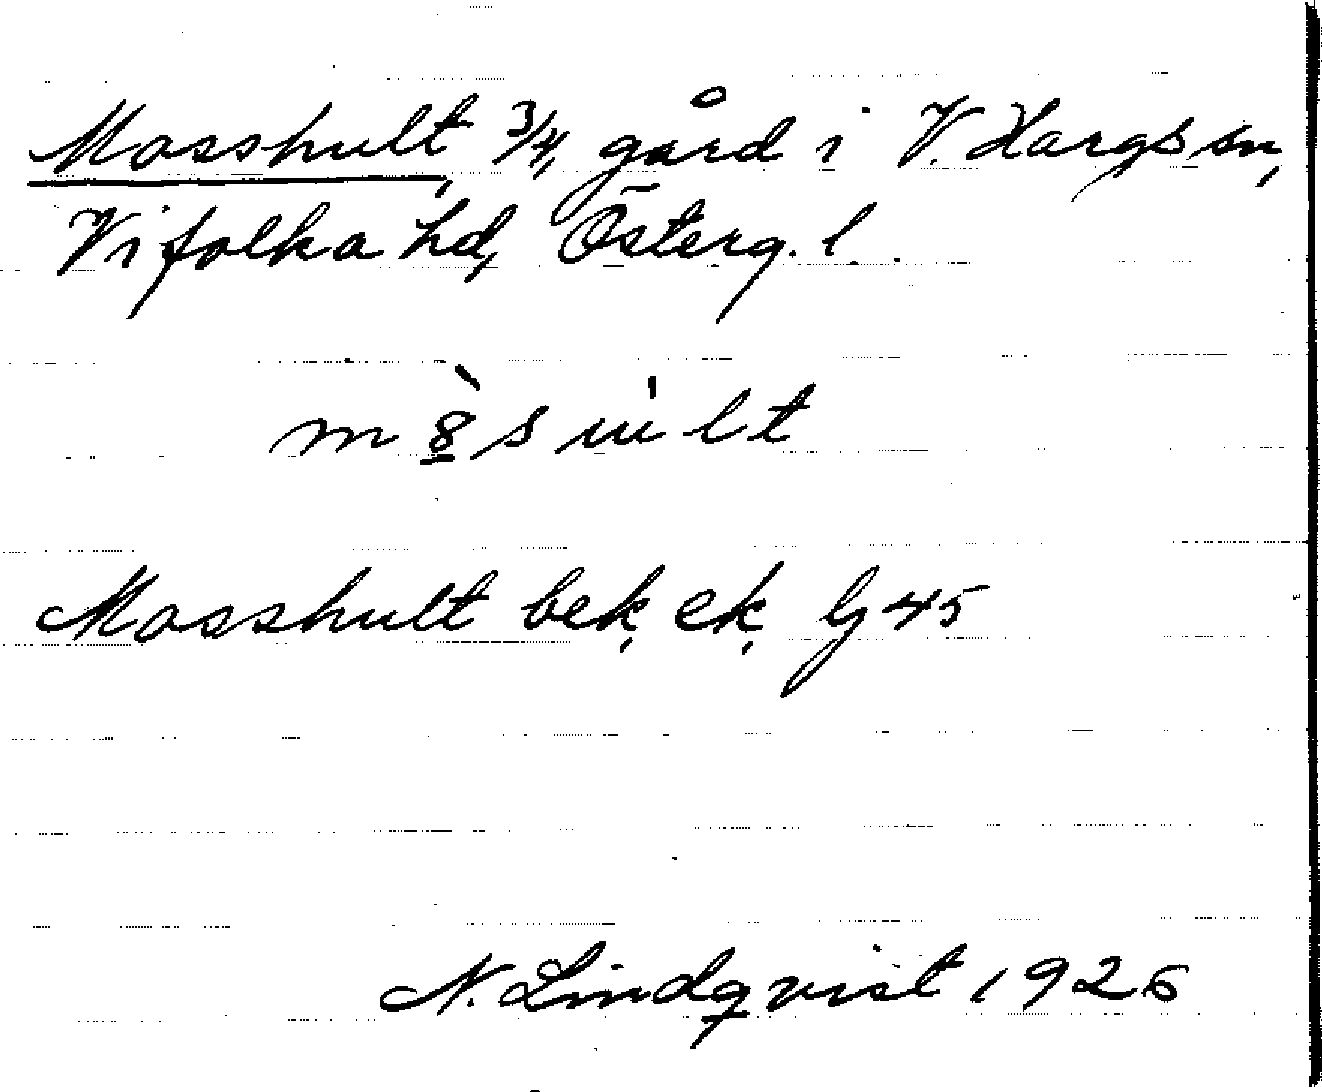 Mosshult, 3/4, gård i V. Hargs sn,
Vifolka hd, Österg. l.
Mosshult bek. ek. bg 45
N. Lindqvist 1926